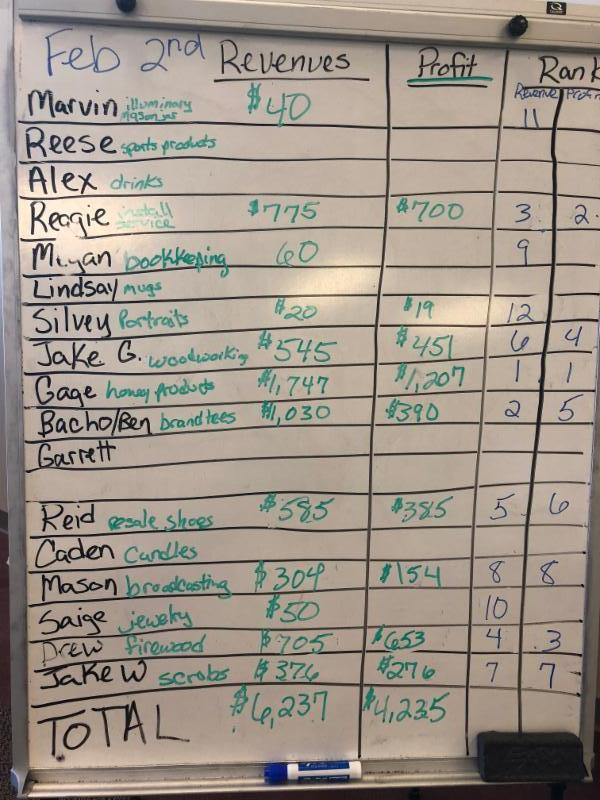 Feb 2nd Revenues Profit Rank
Revenue Profit
Marvin illuminary mason jars $40 11
Reese sports products
Alex drinks
Reagie install service $775 $700 3 2
Megan bookkeeping 60 9
Lindsay mugs
Silvey Portraits $20 $19 12
Jake G. woodworking $545 $451 6 4
Gage honey products $1,747 $1,207 1 1
Bacho/Ben brand tees $1,030 $390 2 5
Garrett
Reid resale shoes $585 $385 5 6
Caden Candles
Mason broadcasting $304 $154 8 8
Saige jewelry $50 10
Drew firewood $705 $653 4 3
Jake W scrobs $376 $276 7 7
TOTAL $6,237 $4,235